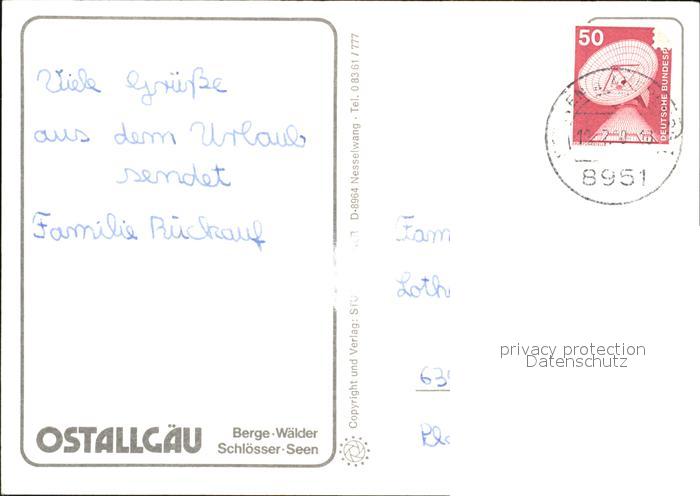 Viele Grüße
aus dem Urlaub
sendet
Familie Rückauf
OSTALLGÄU
Berge·Wälder
Schlösser·Seen
Copyright und Verlag:
D-8964 Nesselwang · Tel. 0 83 61 / 777
50
DEUTSCHE BUNDESP
8951
Fam
Loth
privacy protection
Datenschutz